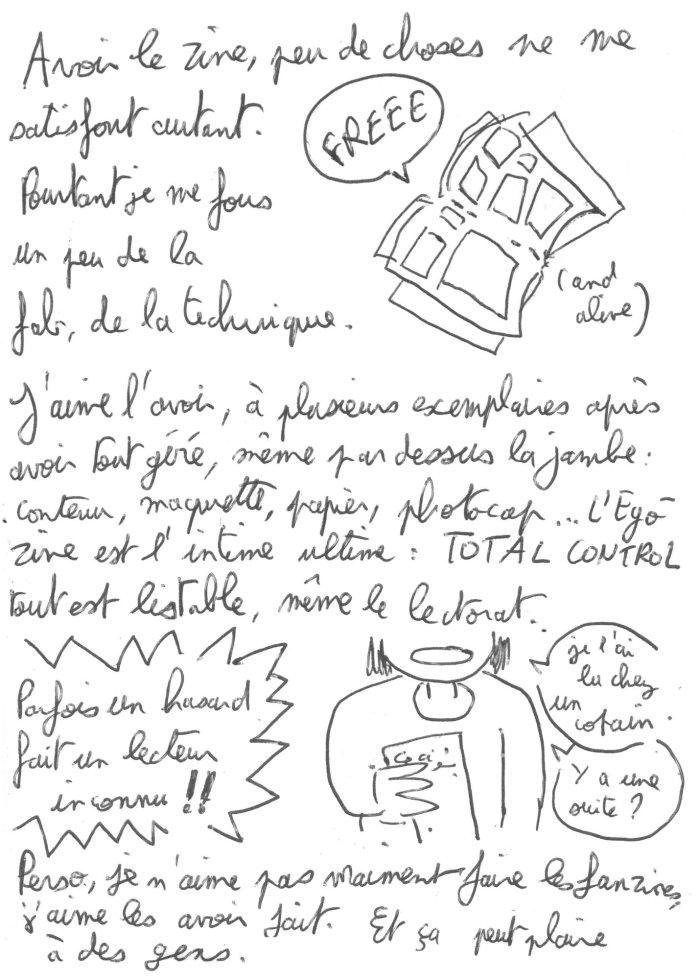 Avoir le zine, peu de choses ne me
satisfont autant.
FREEE
Pourtant je me fous
un peu de la
fab, de la technique.
(and
alive)
J'aime l'avoir, à plusieurs exemplaires après
avoir tout géré, même par dessus la jambe :
contenu, maquette, papier, photocop... L'Égo-
zine est l'intime ultime : TOTAL CONTROL
tout est listable, même le lectorat.
Parfois un hasard
fait un lecteur
inconnu !!
je l'ai
lu chez
un
copain.
Y a une
suite ?
Perso, je n'aime pas vraiment faire les fanzines,
j'aime les avoir fait. Et ça peut plaire
à des gens.